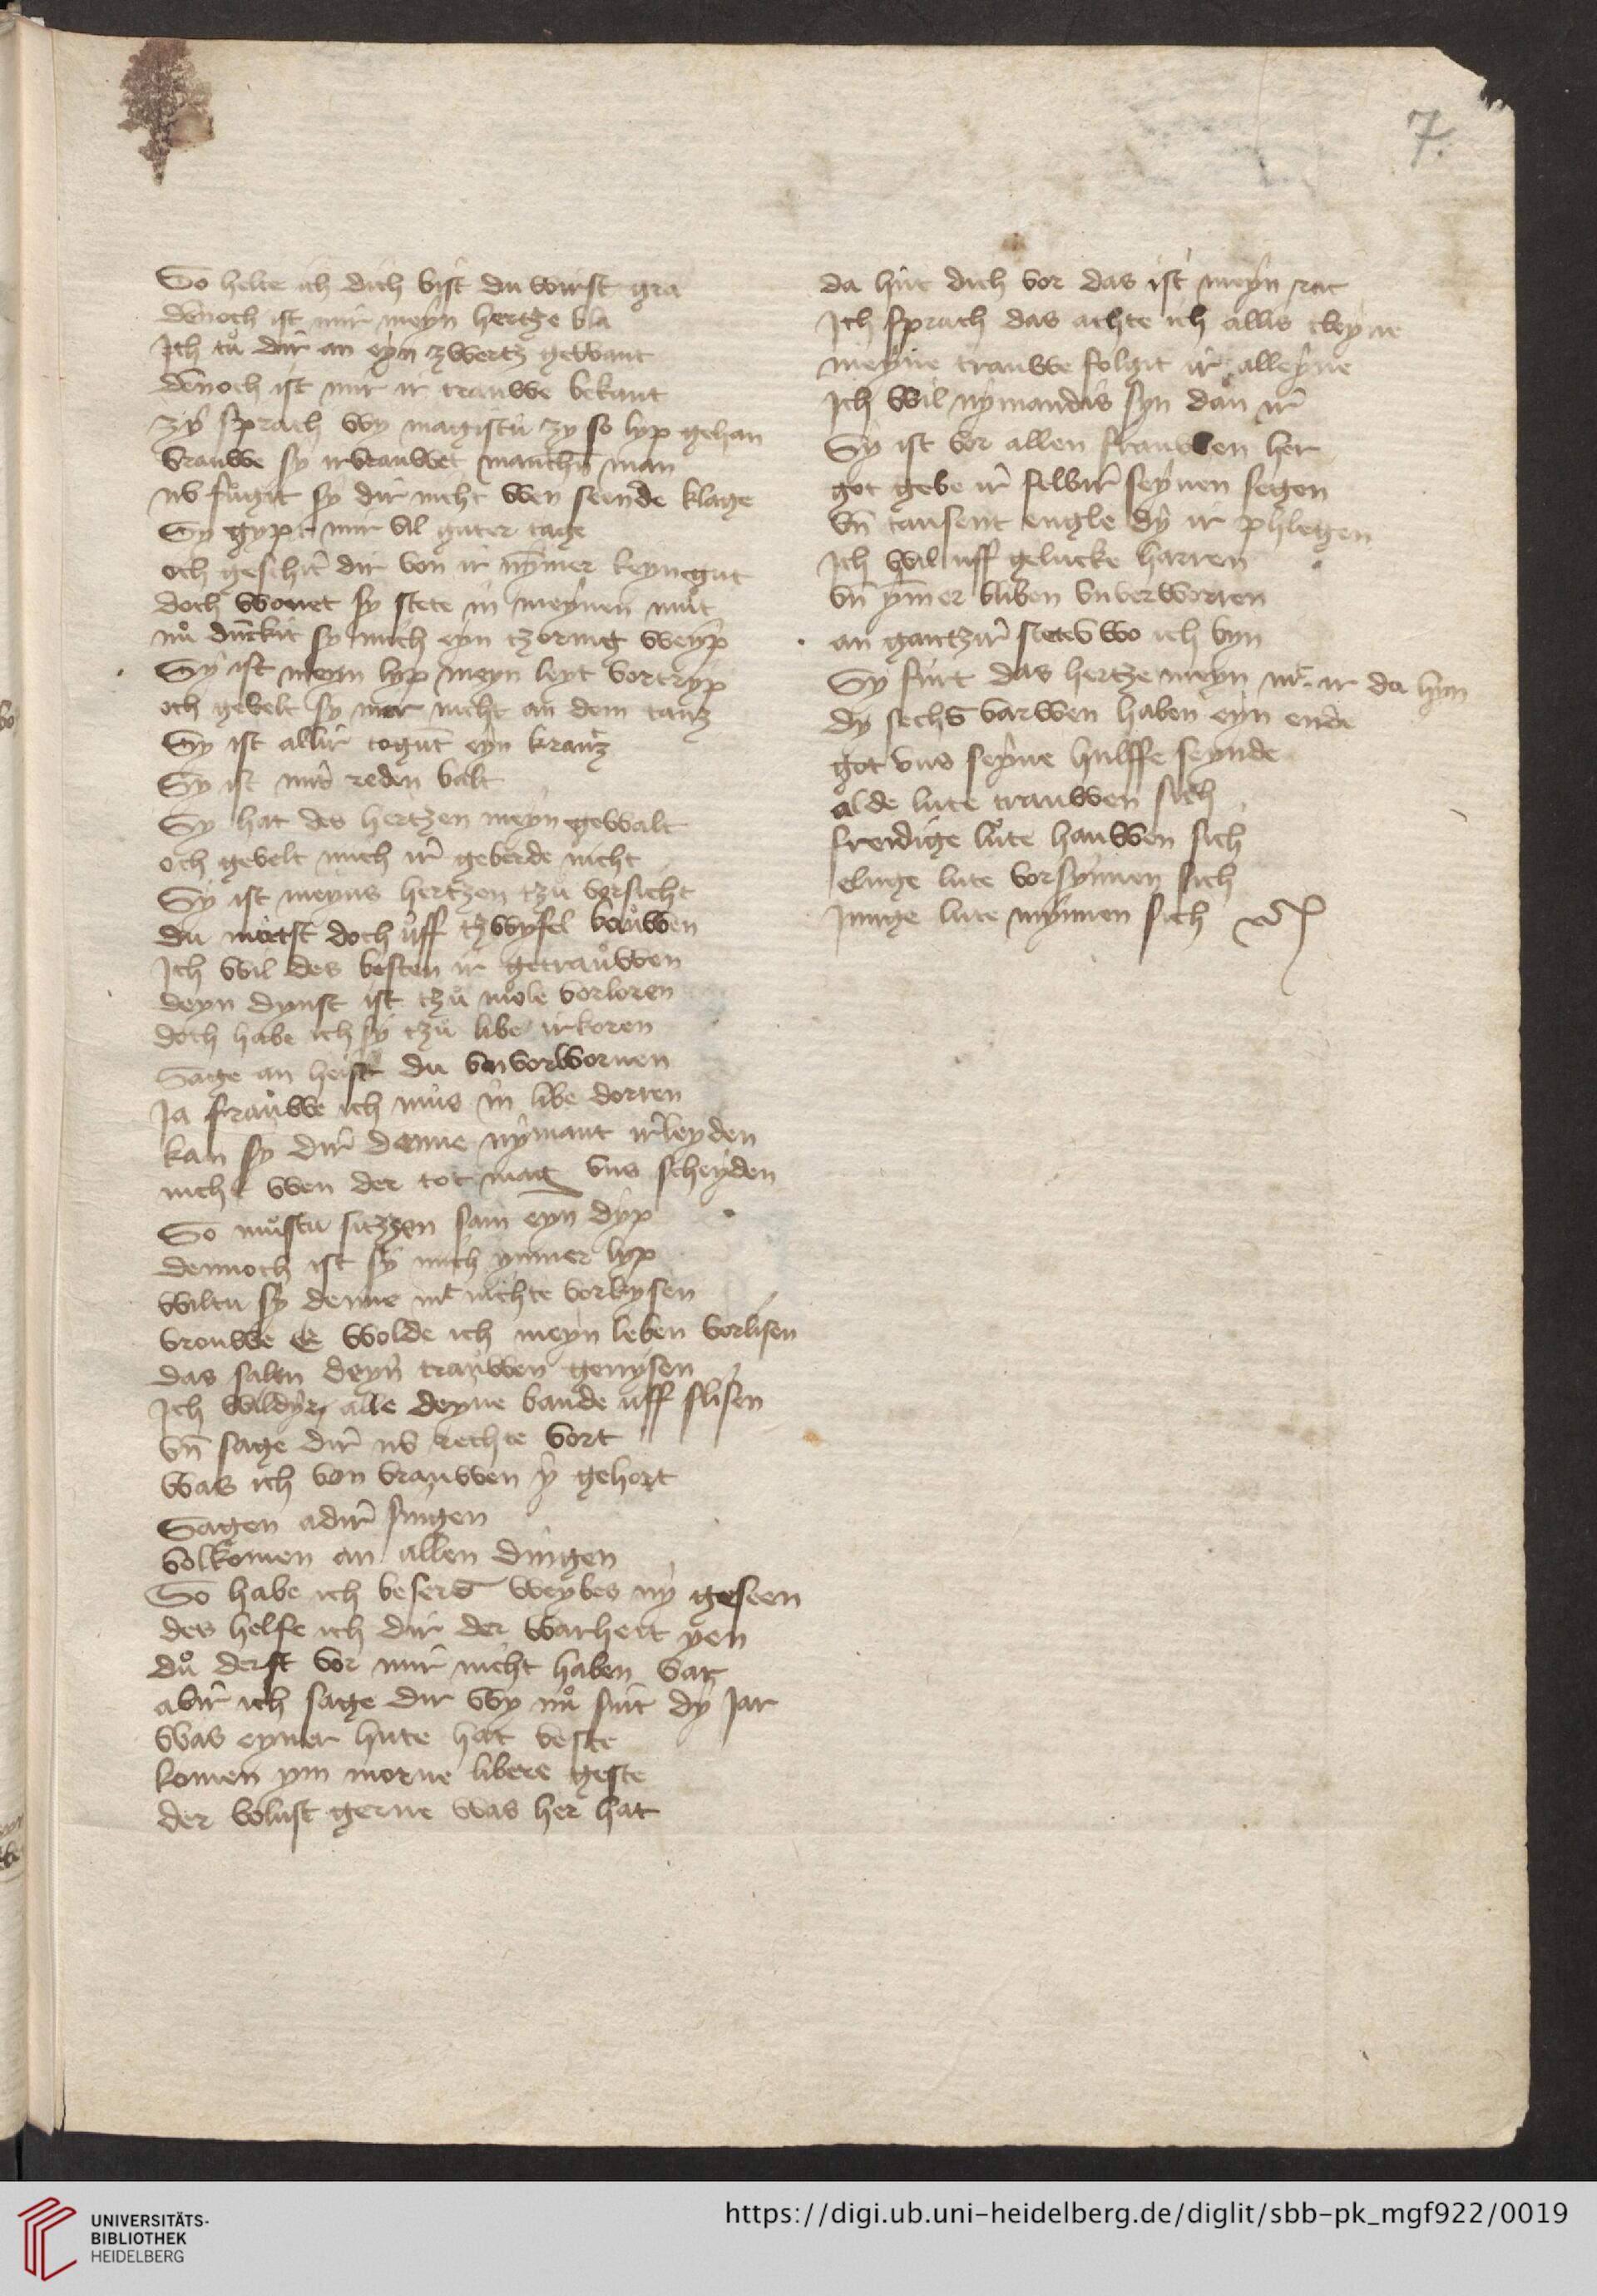 7.
So helte ich dich bist du wirst gra
dēnoch ist mir meyn hertze bla
Ich tů dir an eyn zwertz gewant
dēnoch ist mir ir trauwe bekant
zy sprach wy magistu zy so lyp gehan
vrauwe sy irvrauwet manchē man
nv fůgit sy dir nicht wen seende klage
Sy gypt mir vil guter tage
och geschit dir von ir nȳmer keyn gut
doch wonet sy stete in meynen můt
nů dūckit sy mich eyn tzornig weyp
Sy ist meyn lyp meyn leyt vortryp
och gevelt sy mer nicht an dem tantz
Sy ist allir togūt eyn krantz
Sy ist mit reden balt
Sy hat des hertzen meyn gewalt
och gevelt mich ir geberde nicht
Sy ist meyns hertzen tzů vorsicht
du můtst doch uff tzwyfel bauwen
Ich wil des besten ir getrauwen
deyn dynst ist tzů mole vorloren
doch habe ich sy tzů libe irkoren
Sage an heist du vnvorworuen
Ja frauwe ich můs in libe dorren
kan sy dir denne nymant irleyden
nicht wen der tot mag vns scheyden
So můstu sitzzen sam eyn dyp
dennoch ist sy mich ymmer lyp
wiltu sy denne mit nichte vorkysen
vrouwe E wolde ich meyn leben vorlisen
das saltu deyn trauwen genysen
Ich wil dyr alle deyne bande uff slisen
vn̄ sage dir nv rechte vort
was ich von vrauwen y gehort
Sagen adir singen
volkomen an allen dingen
So habe ich besers weybes ny geseen
des helfe ich dir der warheit yen
dů derst vor mir nicht haben var
abir ich sage dir wy nů sint dy Jar
was eyner hute hat veste
komen ym morne libere geste
der volust gerne was her hat
da hůt dich vor das ist meyn rat
Ich sprach das achte ich allis cleyne
meyne trauwe folgit ir alleyne
Ich wil nymandis syn dan ir
Sy ist vor allen frauwen her
got gebe ir selbir seynen segen
vn̄ tausent engle dy ir phlegen
Ich wil uff gelucke harren
vn̄ ȳmer bliben vnverworren
an gantzir stete wo ich byn
Sy furt das hertze meyn mit ir da hyn
dy sechs varwen haben eyn ende
got vns seyne hulffe seynde
alde lute trauwen sich
freidige lůte hauwen sich
cluge lute vorsynnen sich
Junge lute mynnen sich
UNIVERSITÄTS-
BIBLIOTHEK
HEIDELBERG
https://digi.ub.uni-heidelberg.de/diglit/sbb-pk_mgf922/0019